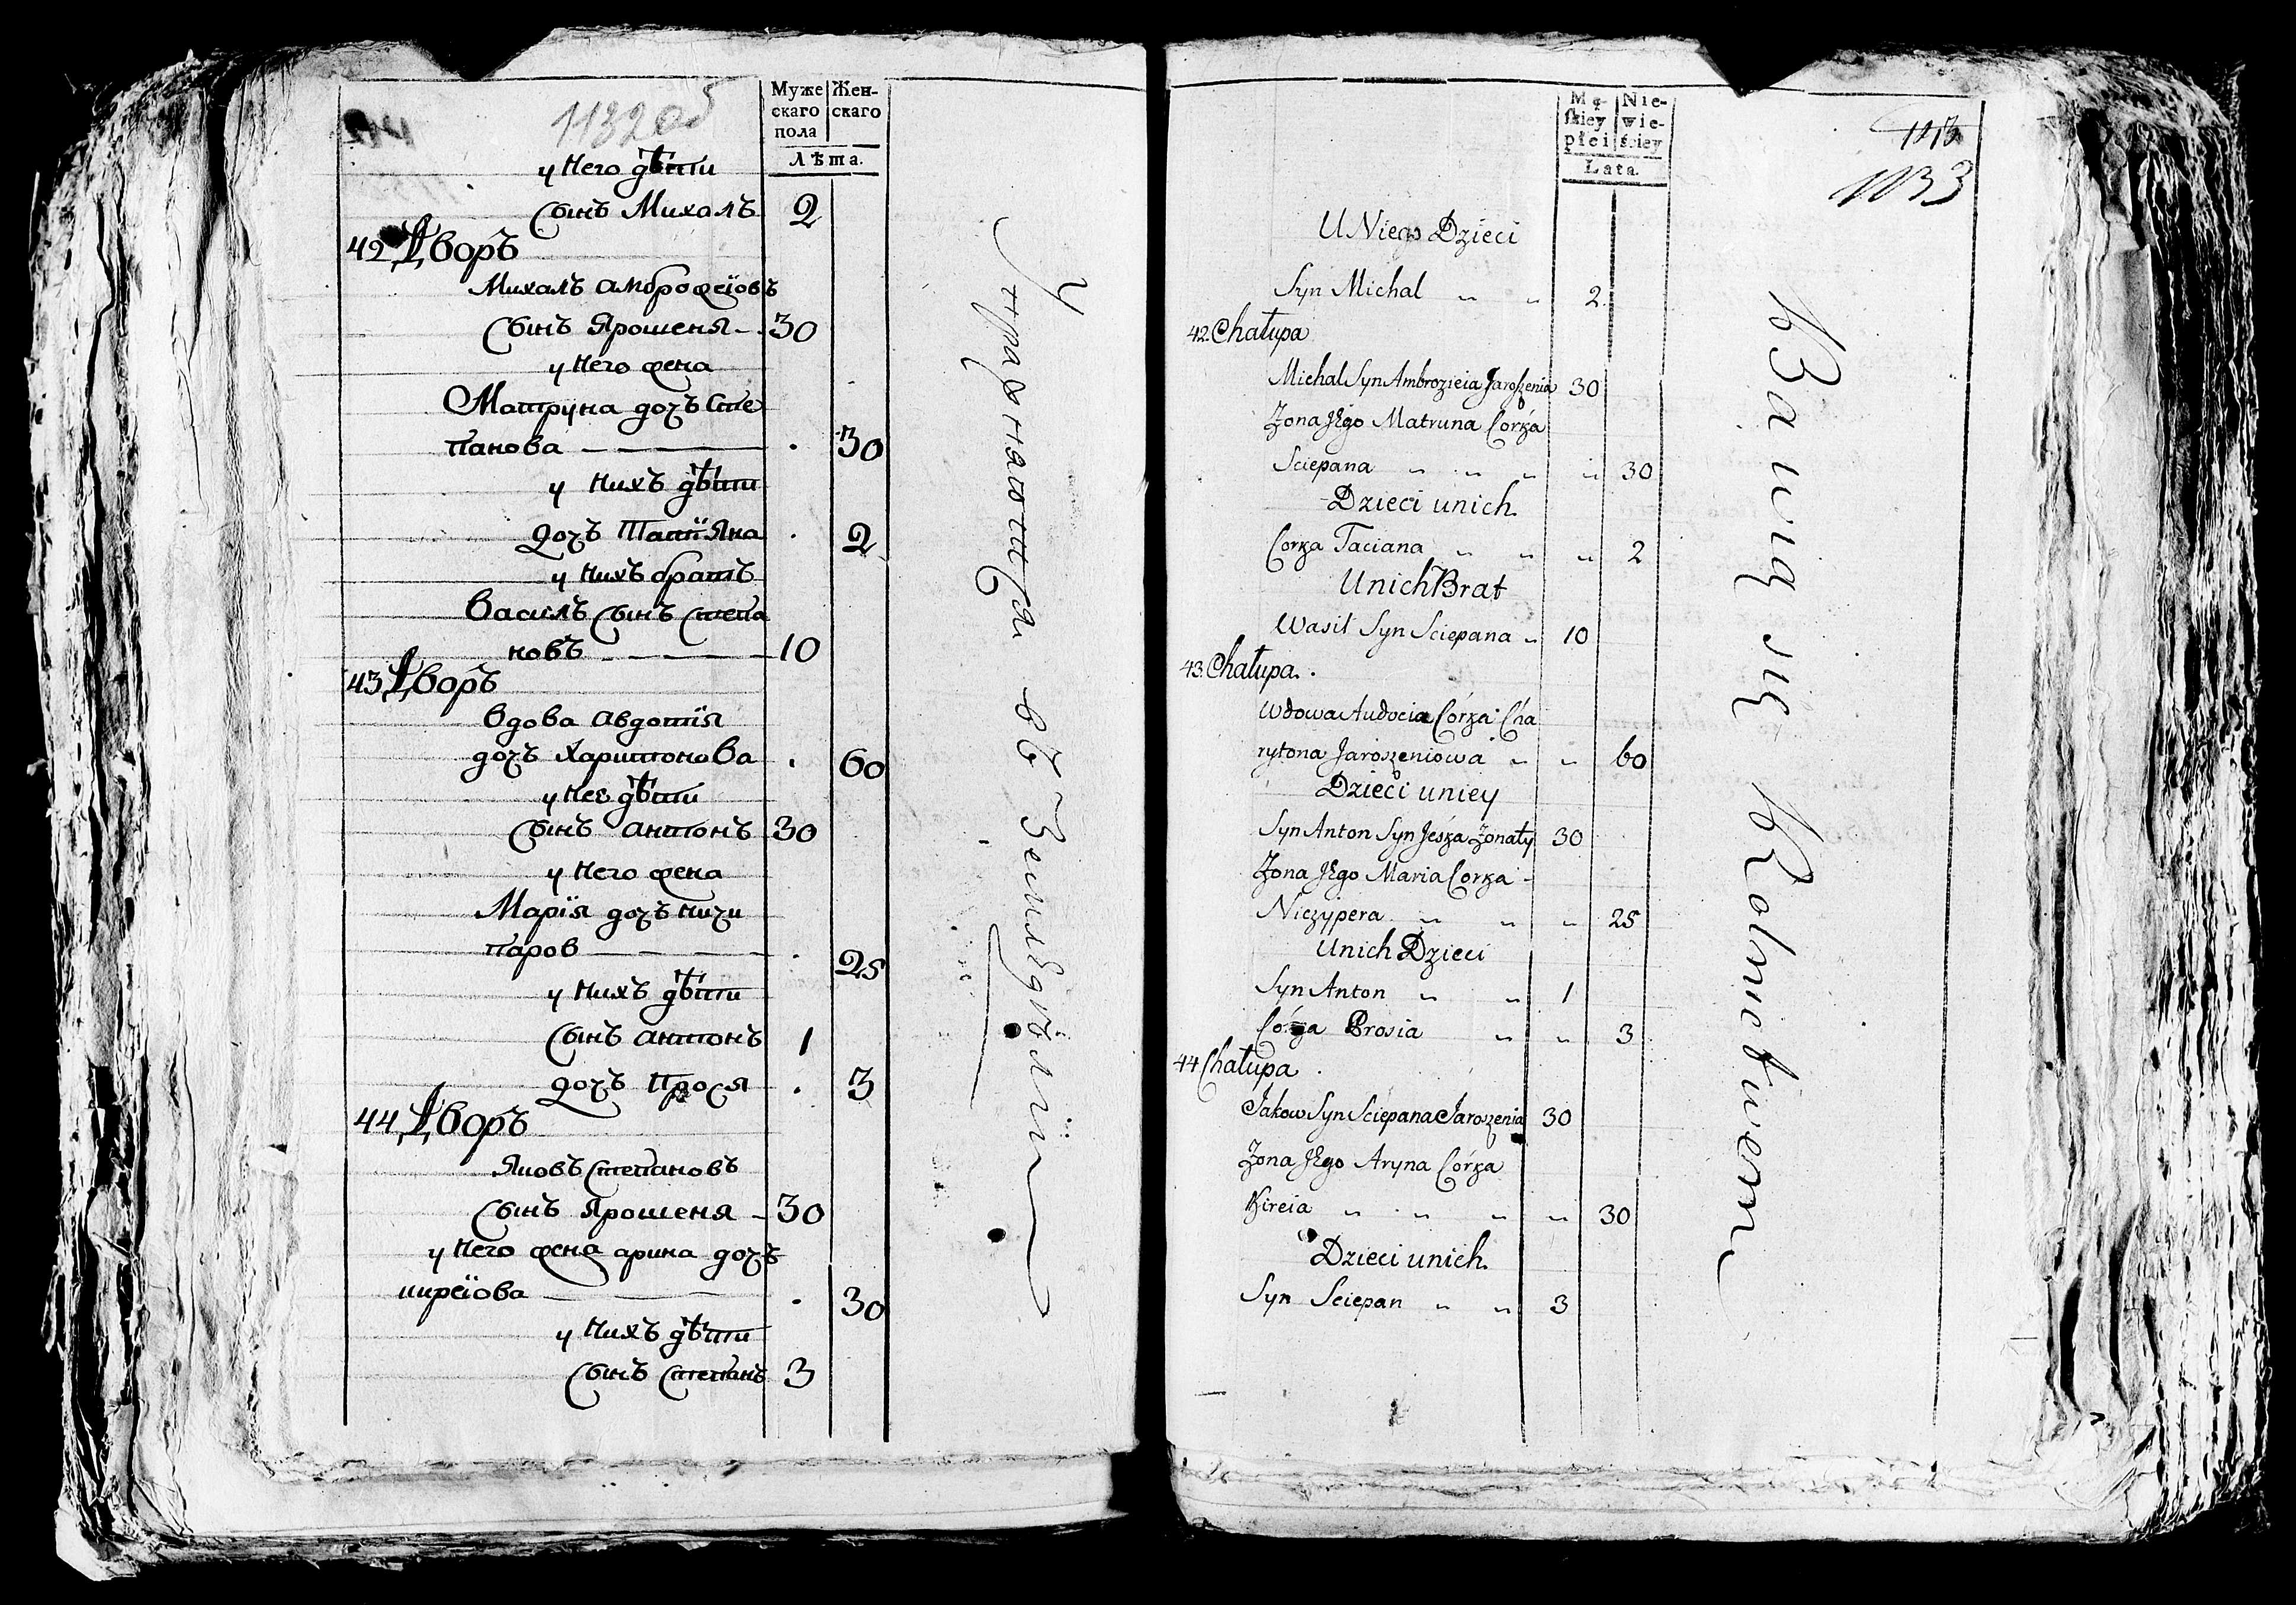 44
1132 об
Муже
скаго
пола
Жен-
скаго
Лѣта.
у Него дѣти
Сынъ Михалъ 2
42 Дворъ
Михалъ Амброжеіовъ
Сынъ Ярошеня - 30
у Него жена
Матруна дочъ Сте
панова . 30
у Нихъ дѣти
Дочъ Татіяна . 2
у Нихъ братъ
Василъ Сынъ Степа
новъ 10
43 Дворъ
Вдова Авдотія
дочъ Харитонова . 60
у Нее дѣти
Сынъ Антонъ 30
у Него жена
Марія дочъ Ничи
паров . 25
у Нихъ дѣти
Сынъ Антонъ 1
Дочъ Прося . 3
44 Дворъ
Яковъ Степановъ
Сынъ Ярошеня - 30
у Него жена Арина дочъ
Киреіова . 30
у Нихъ дѣти
Сынъ Степанъ 3
Упражняются въ Земледѣліи
Mę-
skiey
płci
Nie-
wie-
ściey
Lata.
1033
U Niego Dzieci
Syn Michal " " 2
42. Chałupa
Michal Syn Ambrozieia Jaroszenia 30
Zona Jego Matruna Córka
Sciepana " " " " 30
Dzieci unich.
Corka Taciana " " " 2
Unich Brat
Wasil Syn Sciepana " 10
43. Chałupa.
Wdowa Audocia Córka Cha
rytona Jaroszeniowa " " 60
Dzieci uniey
Syn Anton Syn Jeśka Zonaty 30
Zona Jego Maria Corka -
Niczypera " " " 25
Unich Dzieci
Syn Anton " " 1
Córka Prosia " " 3
44 Chałupa
Jakow Syn Sciepana Jaroszenia 30
Zona Jego Aryna Córka
Kireia " " " " 30
Dzieci unich.
Syn Sciepan " " 3
Bawią się Rolnictwem